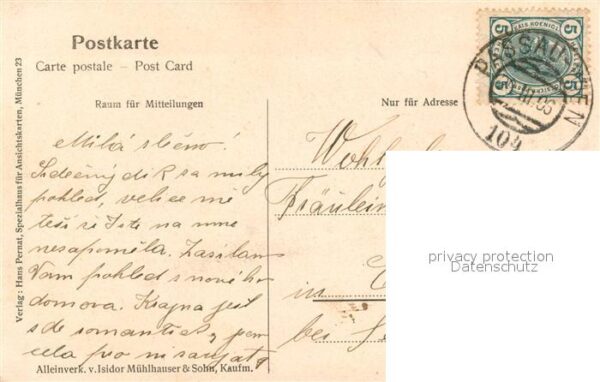 Postkarte
Carte postale – Post Card
Raum für Mitteilungen
Nur für Adresse
Milá slečno!
Srdečný dík za milý
pohled, velice mě
těší že jste na mne
nezapoměla. Zasílám
Vám pohled s nového
domova. Krajina jest
zde romantická, jsem
cela pro ni zaujata
Wohlg
Fräulein
in
bei
Verlag: Hans Pernat, Spezialhaus für Ansichtskarten, München 23
Alleinverk. v. Isidor Mühlhauser & Sohn, Kaufm.
5
5
5
5
PASSAU
109
privacy protection
Datenschutz